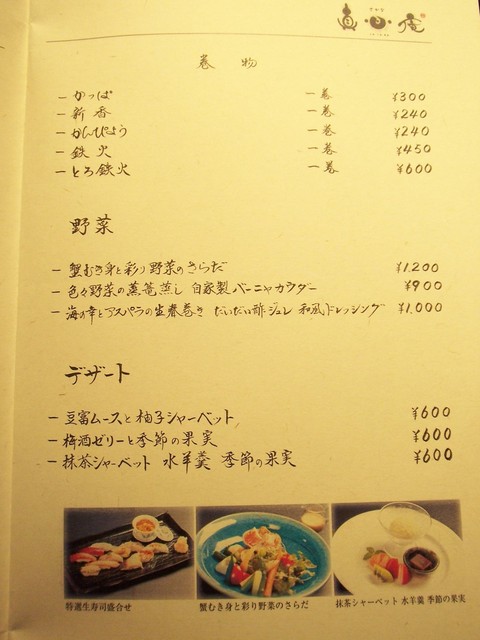 眞 庵
巻物
一 かっぱ 一巻 ¥300
一 新香 一巻 ¥240
一 かんぴょう 一巻 ¥240
一 鉄火 一巻 ¥450
一 とろ鉄火 一巻 ¥600
野菜
一 蟹むき身と彩り野菜のさらだ ¥1,200
一 色々野菜の蒸篭蒸し 自家製バーニャカウダー ¥900
一 海の幸とアスパラの生春巻き だいだい酢ジュレ 和風ドレッシング ¥1,000
デザート
一 豆富ムースと柚子シャーベット ¥600
一 梅酒ゼリーと季節の果実 ¥600
一 抹茶シャーベット 水羊羹 季節の果実 ¥600
特選生寿司盛合せ
蟹むき身と彩り野菜のさらだ
抹茶シャーベット 水羊羹 季節の果実